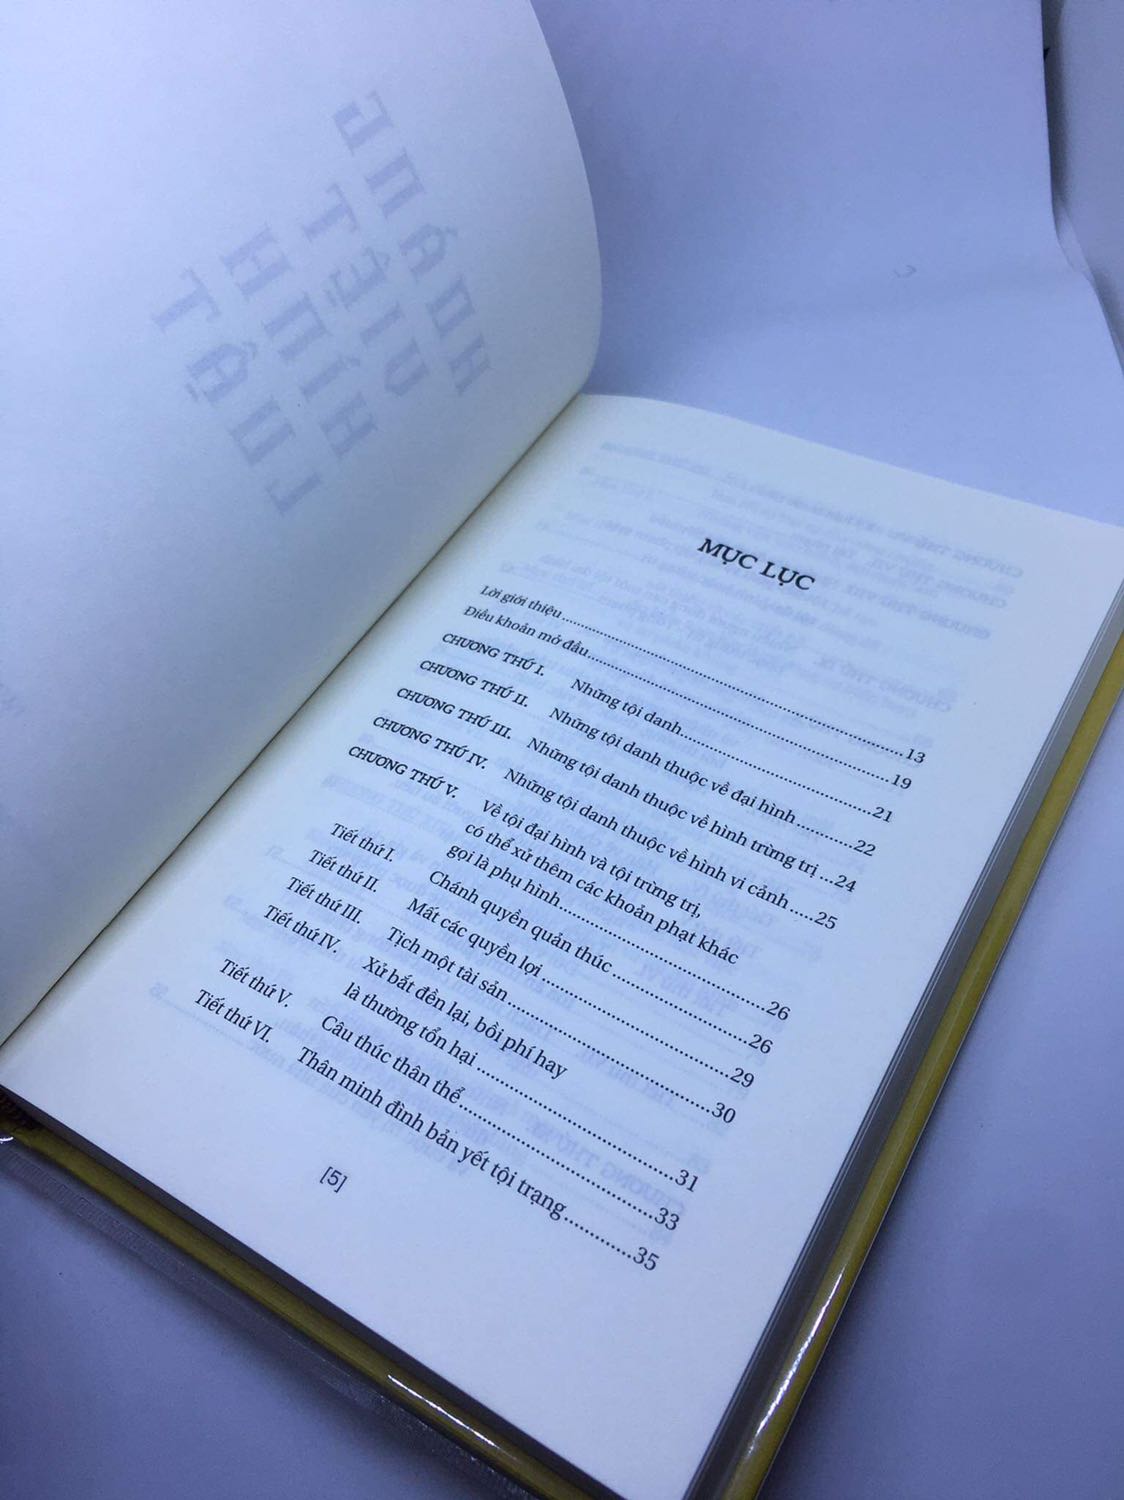 MỤC LỤC
Lời giới thiệu.....13
Điều khoản mở đầu.....19
CHƯƠNG THỨ I. Những tội danh.....21
CHƯƠNG THỨ II. Những tội danh thuộc về đại hình.....22
CHƯƠNG THỨ III. Những tội danh thuộc về hình trừng trị ...24
CHƯƠNG THỨ IV. Những tội danh thuộc về hình vi cảnh .....25
CHƯƠNG THỨ V. Về tội đại hình và tội trừng trị,
có thể xử thêm các khoản phạt khác
gọi là phụ hình.....26
Tiết thứ I. Chánh quyền quản thúc.....26
Tiết thứ II. Mất các quyền lợi.....29
Tiết thứ III. Tịch một tài sản.....30
Tiết thứ IV. Xử bắt đền lại, bồi phí hay
là thường tổn hại .....31
Tiết thứ V. Câu thúc thân thể.....33
Tiết thứ VI. Thân minh đình bản yết tội trạng.....35
[5]